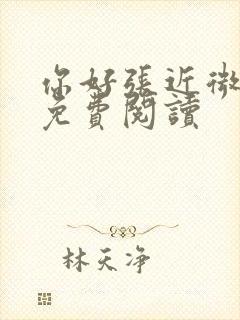 你好張近微
免費閱讀
林天净